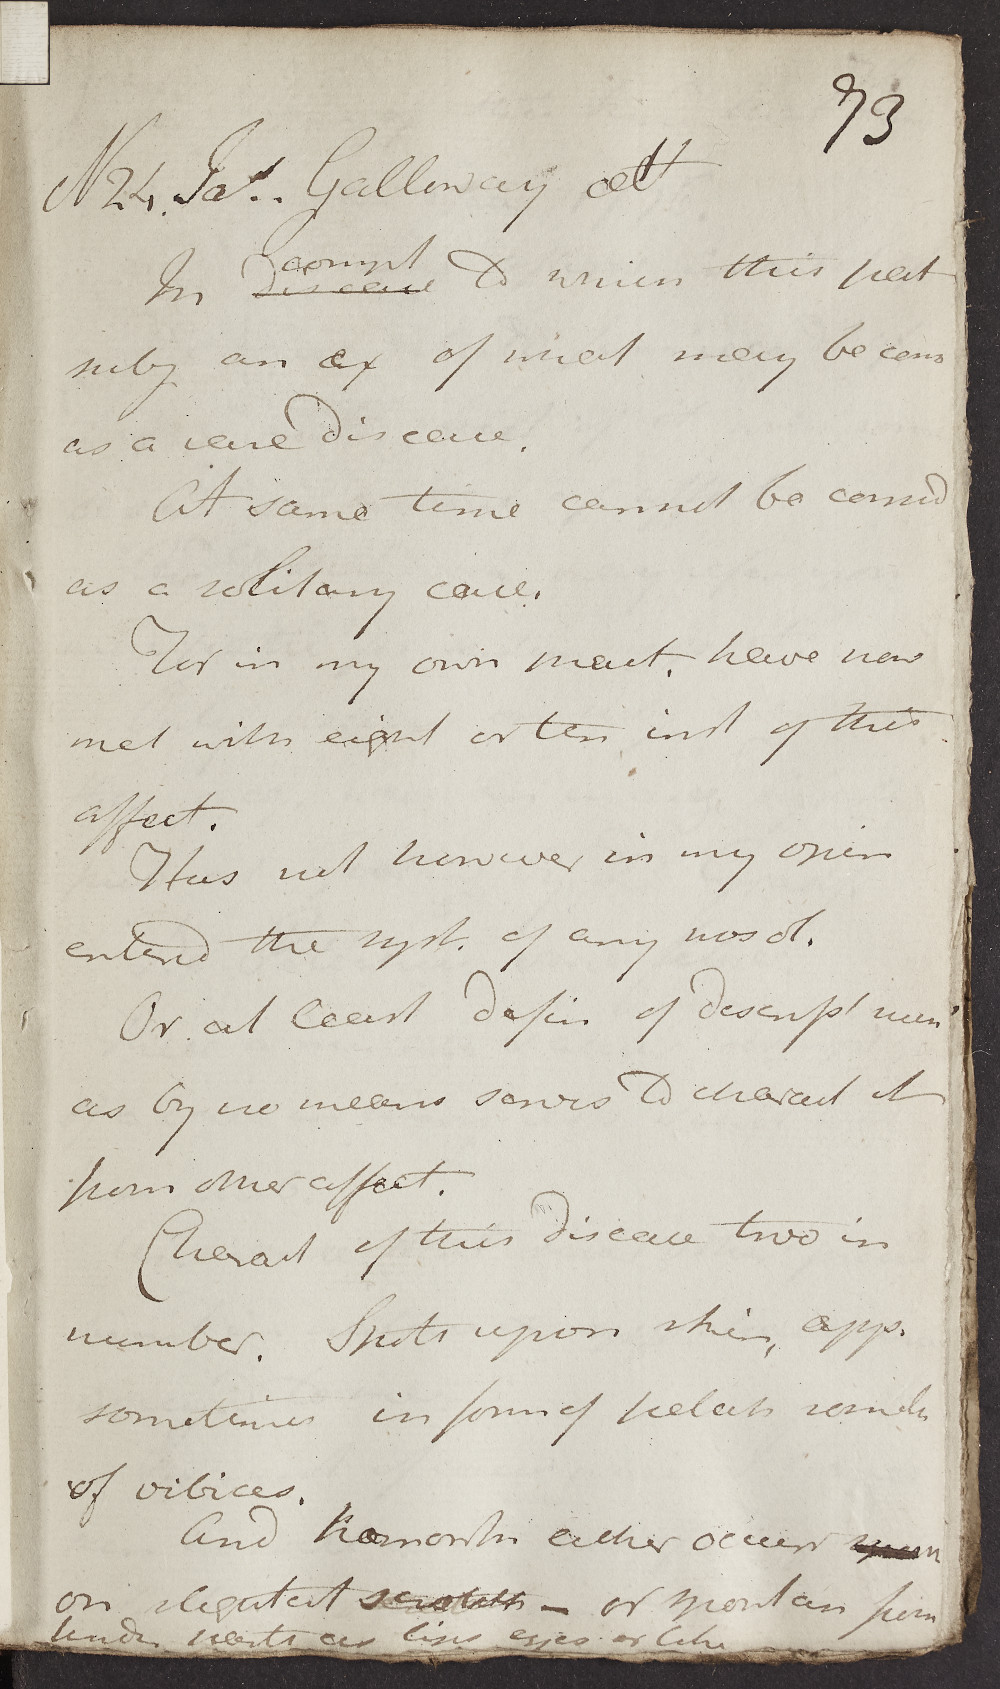 73
N 24. Jas. Galloway æt
compl
In disease to which this pat
subj an ex of what may be cons
as a rare disease.
At same time cannot be consid
as a solitary case.
For in my own pract. have now
met with eight or ten inst of this
affect.
Has not however in my opin
entered the syst. of any nosol.
Or at least defin of descript
as by no means serves to charact it
from other affect.
Charact of this disease two in
number. Spots upon skin, app.
sometimes in form of petech
of vibices.
And hæmorrh either occurr
on slightest scratch - or spontan from
tender parts as